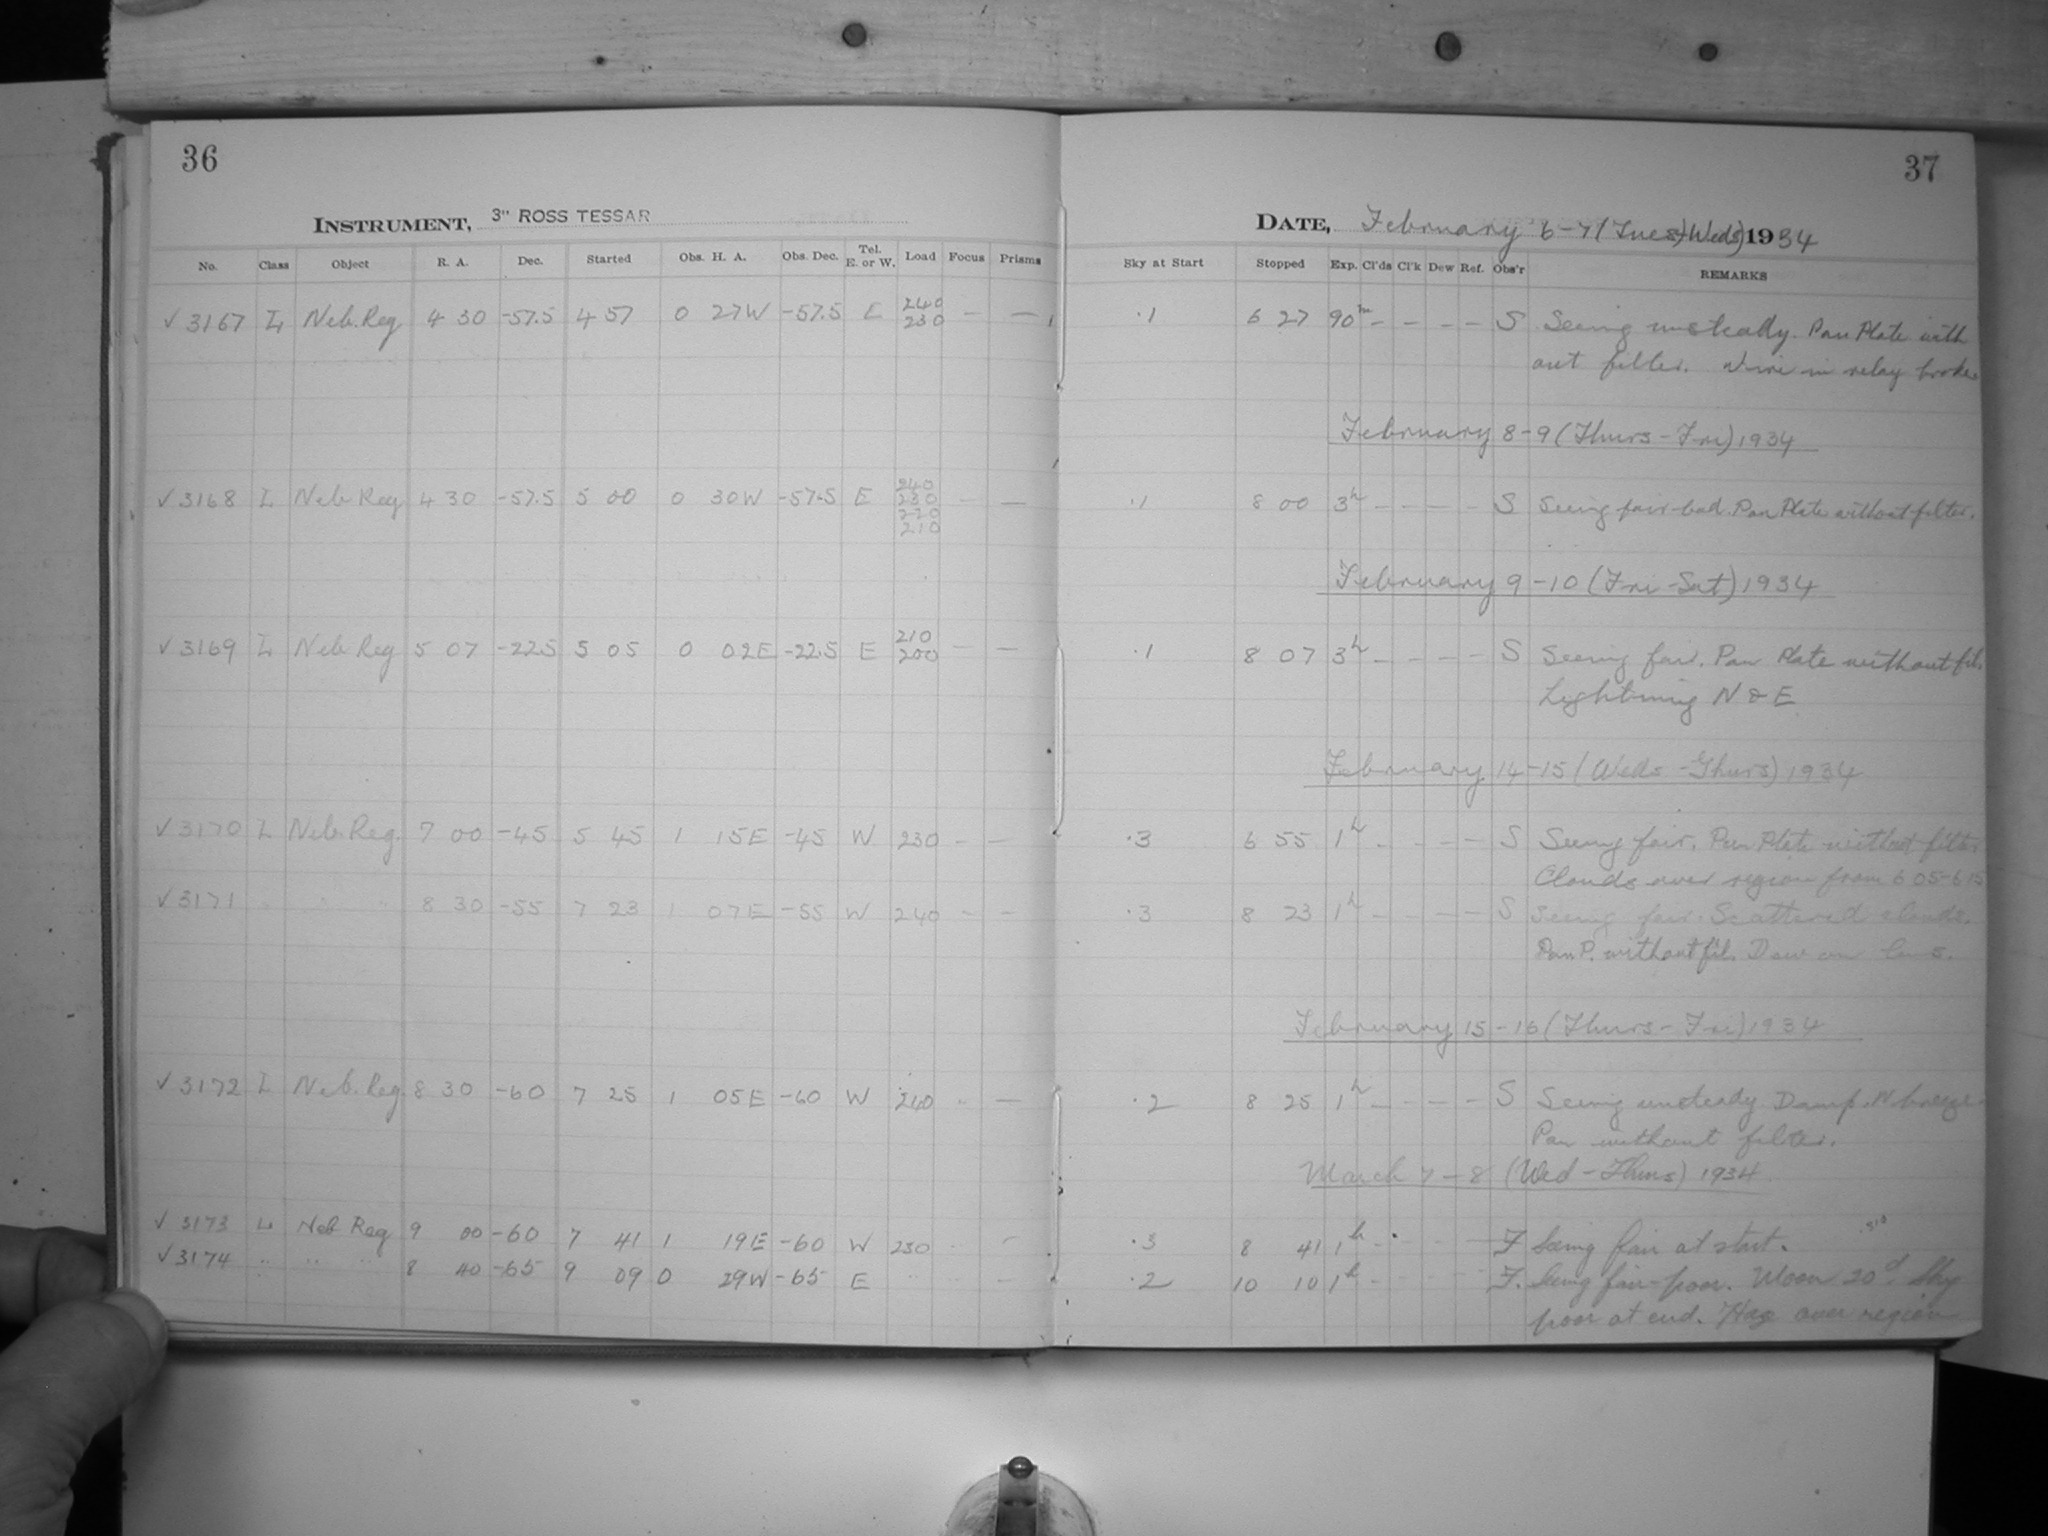 36
INSTRUMENT, 3" ROSS TESSAR
No. Class Object R. A. Dec. Started Obs. H. A. Obs. Dec. Tel. E. or W. Load Focus Prisms
✓ 3167 L Neb. Reg 4 30 -57.5 4 57 0 27W -57.5 E 240 — —
230
✓ 3168 L Neb Reg 4 30 -57.5 5 00 0 30W -57.5 E 240 — —
230
220
210
✓ 3169 L Neb Reg 5 07 -22.5 5 05 0 02E -22.5 E 210 — —
200
✓ 3170 L Neb. Reg. 7 00 -45 5 45 1 15E -45 W 230 - —
✓ 3171 " " " 8 30 -55 7 23 1 07E -55 W 240 - —
✓ 3172 L Neb. Reg. 8 30 -60 7 25 1 05E -60 W 240 - —
✓ 3173 L Neb Reg 9 00 -60 7 41 1 19E -60 W 230 - -
✓ 3174 " " " 8 40 -65 9 09 0 29W -65 E " - -
37
DATE, February 6-7 (Tues-Weds) 1934
Sky at Start Stopped Exp. Cl'ds Cl'k Dew Ref. Obs'r REMARKS
.1 6 27 90m - - - - S Seeing unsteady. Pan Plate with
out filter. Wire in relay broke
February 8-9 (Thurs-Fri) 1934
.1 8 00 3h - - - - S Seeing fair-bad. Pan Plate without filter.
February 9-10 (Fri-Sat) 1934
.1 8 07 3h - - - - S Seeing fair. Pan Plate without fil.
Lightning N & E
February 14-15 (Weds-Thurs) 1934
.3 6 55 1h - - - - S Seeing fair. Pan Plate without filter
Clouds over region from 6 05-6 15
.3 8 23 1h - - - - S Seeing fair. Scattered clouds.
Pan P. without fil. Dew on lens.
February 15-16 (Thurs-Fri) 1934
.2 8 25 1h - - - - S Seeing unsteady. Damp. N breeze.
Pan without filter.
March 7-8 (Wed-Thurs) 1934
.3 8 41 1h - - - - F Seeing fair at start.
.2 10 10 1h - - - - F. Seeing fair-poor. Moon 20d. Sky
poor at end. Haze over region